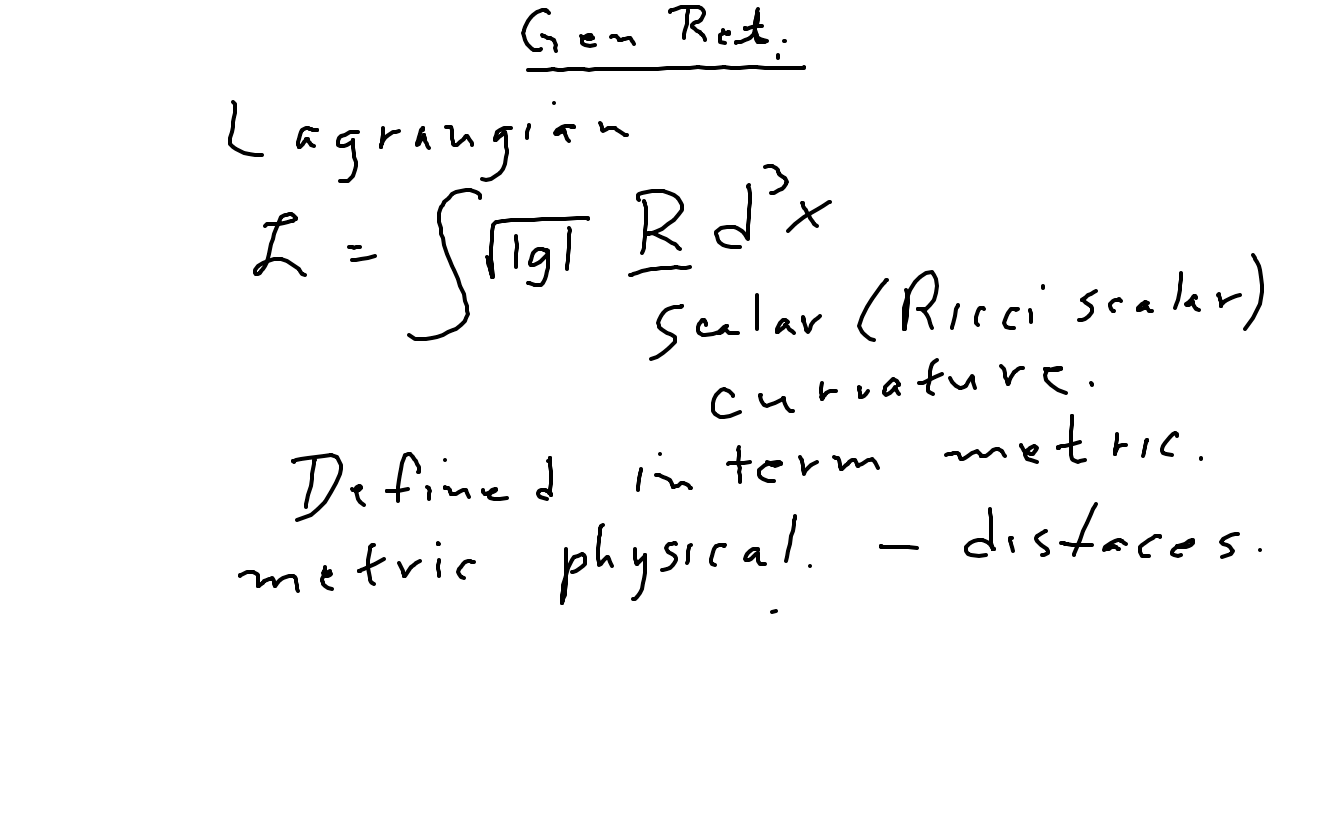 Gen Rel.
Lagrangian
ℒ = ∫√|g| R d³x
scalar (Ricci scalar)
curvature.
Defined in term metric.
metric physical. — distaces.